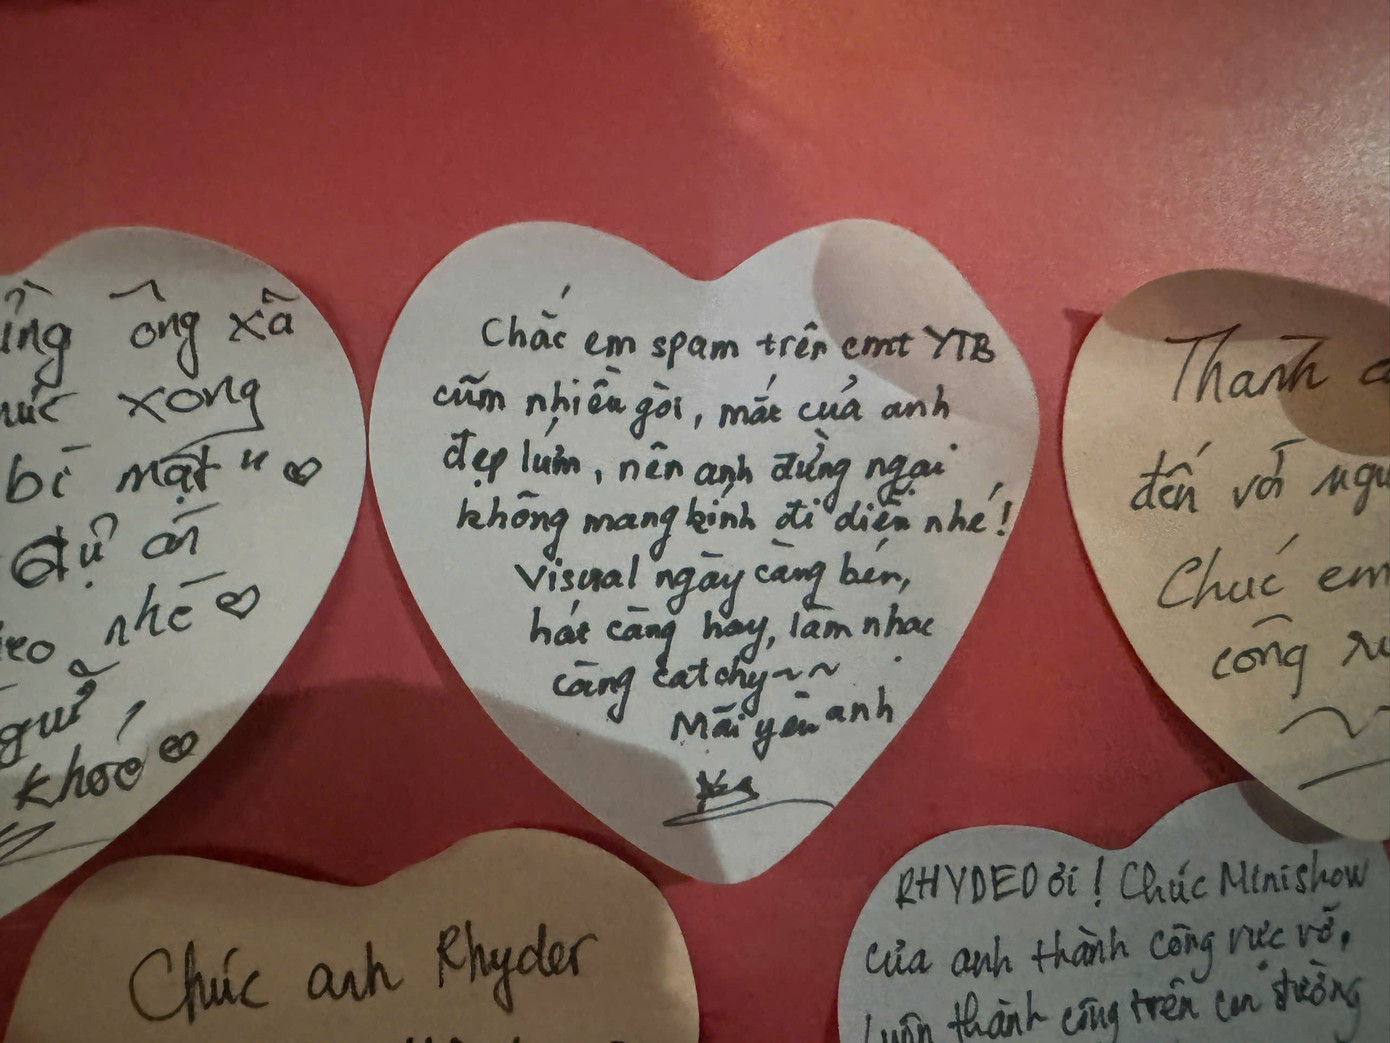 ông xã
xong
bí mật" ♡
dự án
nhé ♡
khoẻ ♡
Chắc em spam trên cmt YTB
cũm nhiều gòi, mắt của anh
đẹp lúm, nên anh đừng ngại
không mang kính đi diễn nhé!
Visual ngày càng bén,
hát càng hay, làm nhạc
càng catchy~~
Mãi yêu anh
Thanh
đến với
Chúc em
công
Chúc anh Rhyder
RHYDED ơi! Chúc Minishow
của anh thành công rực rỡ,
luôn thành công trên con đường